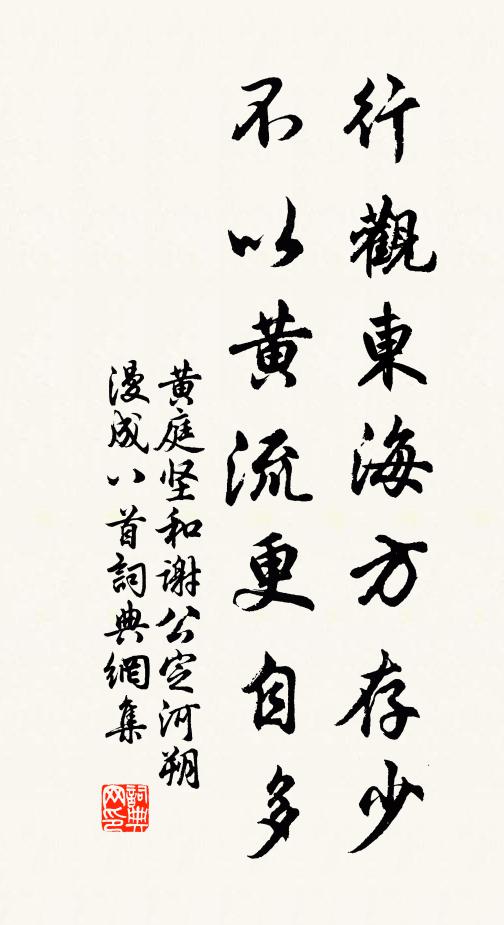 行觀東海方存少
不以黃流更自多
黄庭坚和谢公定河朔
漫成八首詞典網集
詞典
网印